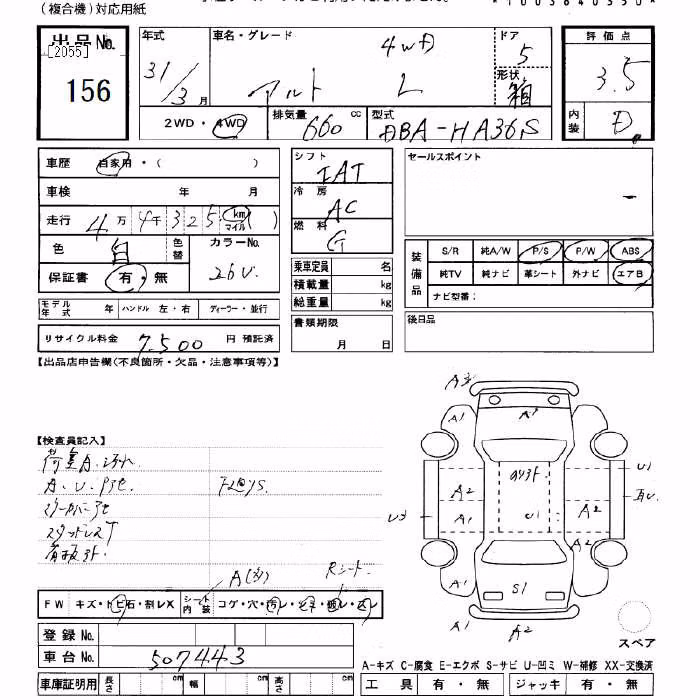 (複合機)対応用紙
出品No.
[2055]
156
年式
31/3月
車名・グレード
アルト L 4WD
ドア
5
形状
箱
評価点
3.5
内装
D
2WD・4WD
排気量
660 cc
型式
DBA-HA36S
車歴 自家用・( )
車検 年 月
走行 4万4千325 km マイル ( )
色 白 色替 カラーNo. 26U
保証書 有・無
モデル年式 年 ハンドル 左・右 ディーラー・並行
リサイクル料金 7,500 円 預託済
シフト
IAT
冷房
AC
燃料
G
乗車定員 名
積載量 kg
総重量 kg
書類期限
月 日
セールスポイント
装備品
S/R 純A/W P/S P/W ABS
純TV 純ナビ 革シート 外ナビ エアB
ナビ型番:
後日品
【出品店申告欄(不良箇所・欠品・注意事項等)】
【検査員記入】
荷室A.汚れ
A.U.P他
スタッドレスT
A3
A1
A1
A2
A2
A1
U1
A2
U3
A1
A1
S1
A2
スペア
FW キズ・トビ石・割レX シート内装 コゲ・穴・汚レ
Rシート
登録No.
車台No. 507443
車庫証明用 長さ cm 幅 cm 高さ cm
A-キズ C-腐食 E-エクボ S-サビ U-凹ミ W-補修 XX-交換済
工具 有・無 ジャッキ 有・無